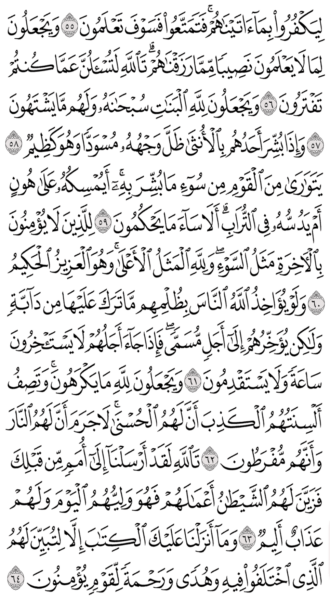 لِيَكْفُرُوا۟ بِمَآ ءَاتَيْنَٰهُمْ ۚ فَتَمَتَّعُوا۟ فَسَوْفَ تَعْلَمُونَ ٥٥ وَيَجْعَلُونَ
لِمَا لَا يَعْلَمُونَ نَصِيبًا مِّمَّا رَزَقْنَٰهُمْ ۗ تَٱللَّهِ لَتُسْـَٔلُنَّ عَمَّا كُنتُمْ
تَفْتَرُونَ ٥٦ وَيَجْعَلُونَ لِلَّهِ ٱلْبَنَٰتِ سُبْحَٰنَهُۥ ۙ وَلَهُم مَّا يَشْتَهُونَ
٥٧ وَإِذَا بُشِّرَ أَحَدُهُم بِٱلْأُنثَىٰ ظَلَّ وَجْهُهُۥ مُسْوَدًّا وَهُوَ كَظِيمٌ ٥٨
يَتَوَٰرَىٰ مِنَ ٱلْقَوْمِ مِن سُوٓءِ مَا بُشِّرَ بِهِۦٓ ۚ أَيُمْسِكُهُۥ عَلَىٰ هُونٍ
أَمْ يَدُسُّهُۥ فِى ٱلتُّرَابِ ۗ أَلَا سَآءَ مَا يَحْكُمُونَ ٥٩ لِلَّذِينَ لَا يُؤْمِنُونَ
بِٱلْءَاخِرَةِ مَثَلُ ٱلسَّوْءِ ۖ وَلِلَّهِ ٱلْمَثَلُ ٱلْأَعْلَىٰ ۚ وَهُوَ ٱلْعَزِيزُ ٱلْحَكِيمُ
٦٠ وَلَوْ يُؤَاخِذُ ٱللَّهُ ٱلنَّاسَ بِظُلْمِهِم مَّا تَرَكَ عَلَيْهَا مِن دَآبَّةٍ
وَلَٰكِن يُؤَخِّرُهُمْ إِلَىٰٓ أَجَلٍ مُّسَمًّى ۖ فَإِذَا جَآءَ أَجَلُهُمْ لَا يَسْتَـْٔخِرُونَ
سَاعَةً ۖ وَلَا يَسْتَقْدِمُونَ ٦١ وَيَجْعَلُونَ لِلَّهِ مَا يَكْرَهُونَ ۚ وَتَصِفُ
أَلْسِنَتُهُمُ ٱلْكَذِبَ أَنَّ لَهُمُ ٱلْحُسْنَىٰ ۖ لَا جَرَمَ أَنَّ لَهُمُ ٱلنَّارَ
وَأَنَّهُم مُّفْرَطُونَ ٦٢ تَٱللَّهِ لَقَدْ أَرْسَلْنَآ إِلَىٰٓ أُمَمٍ مِّن قَبْلِكَ
فَزَيَّنَ لَهُمُ ٱلشَّيْطَٰنُ أَعْمَٰلَهُمْ فَهُوَ وَلِيُّهُمُ ٱلْيَوْمَ وَلَهُمْ
عَذَابٌ أَلِيمٌ ٦٣ وَمَآ أَنزَلْنَا عَلَيْكَ ٱلْكِتَٰبَ إِلَّا لِتُبَيِّنَ لَهُمُ
ٱلَّذِى ٱخْتَلَفُوا۟ فِيهِ ۙ وَهُدًى وَرَحْمَةً لِّقَوْمٍ يُؤْمِنُونَ ٦٤